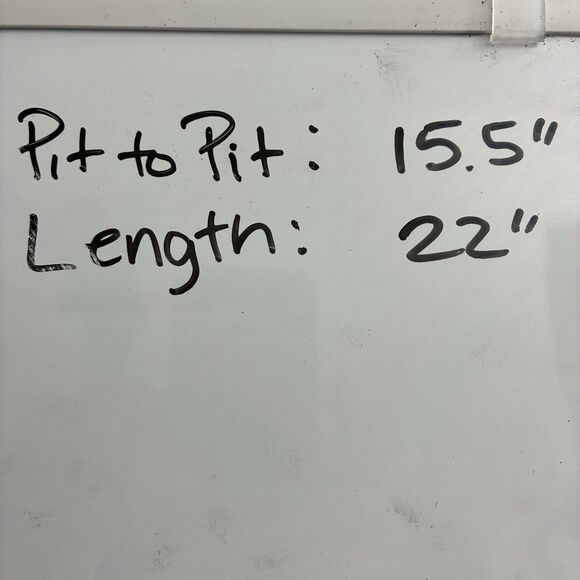 Pit to Pit: 15.5"
Length: 22"